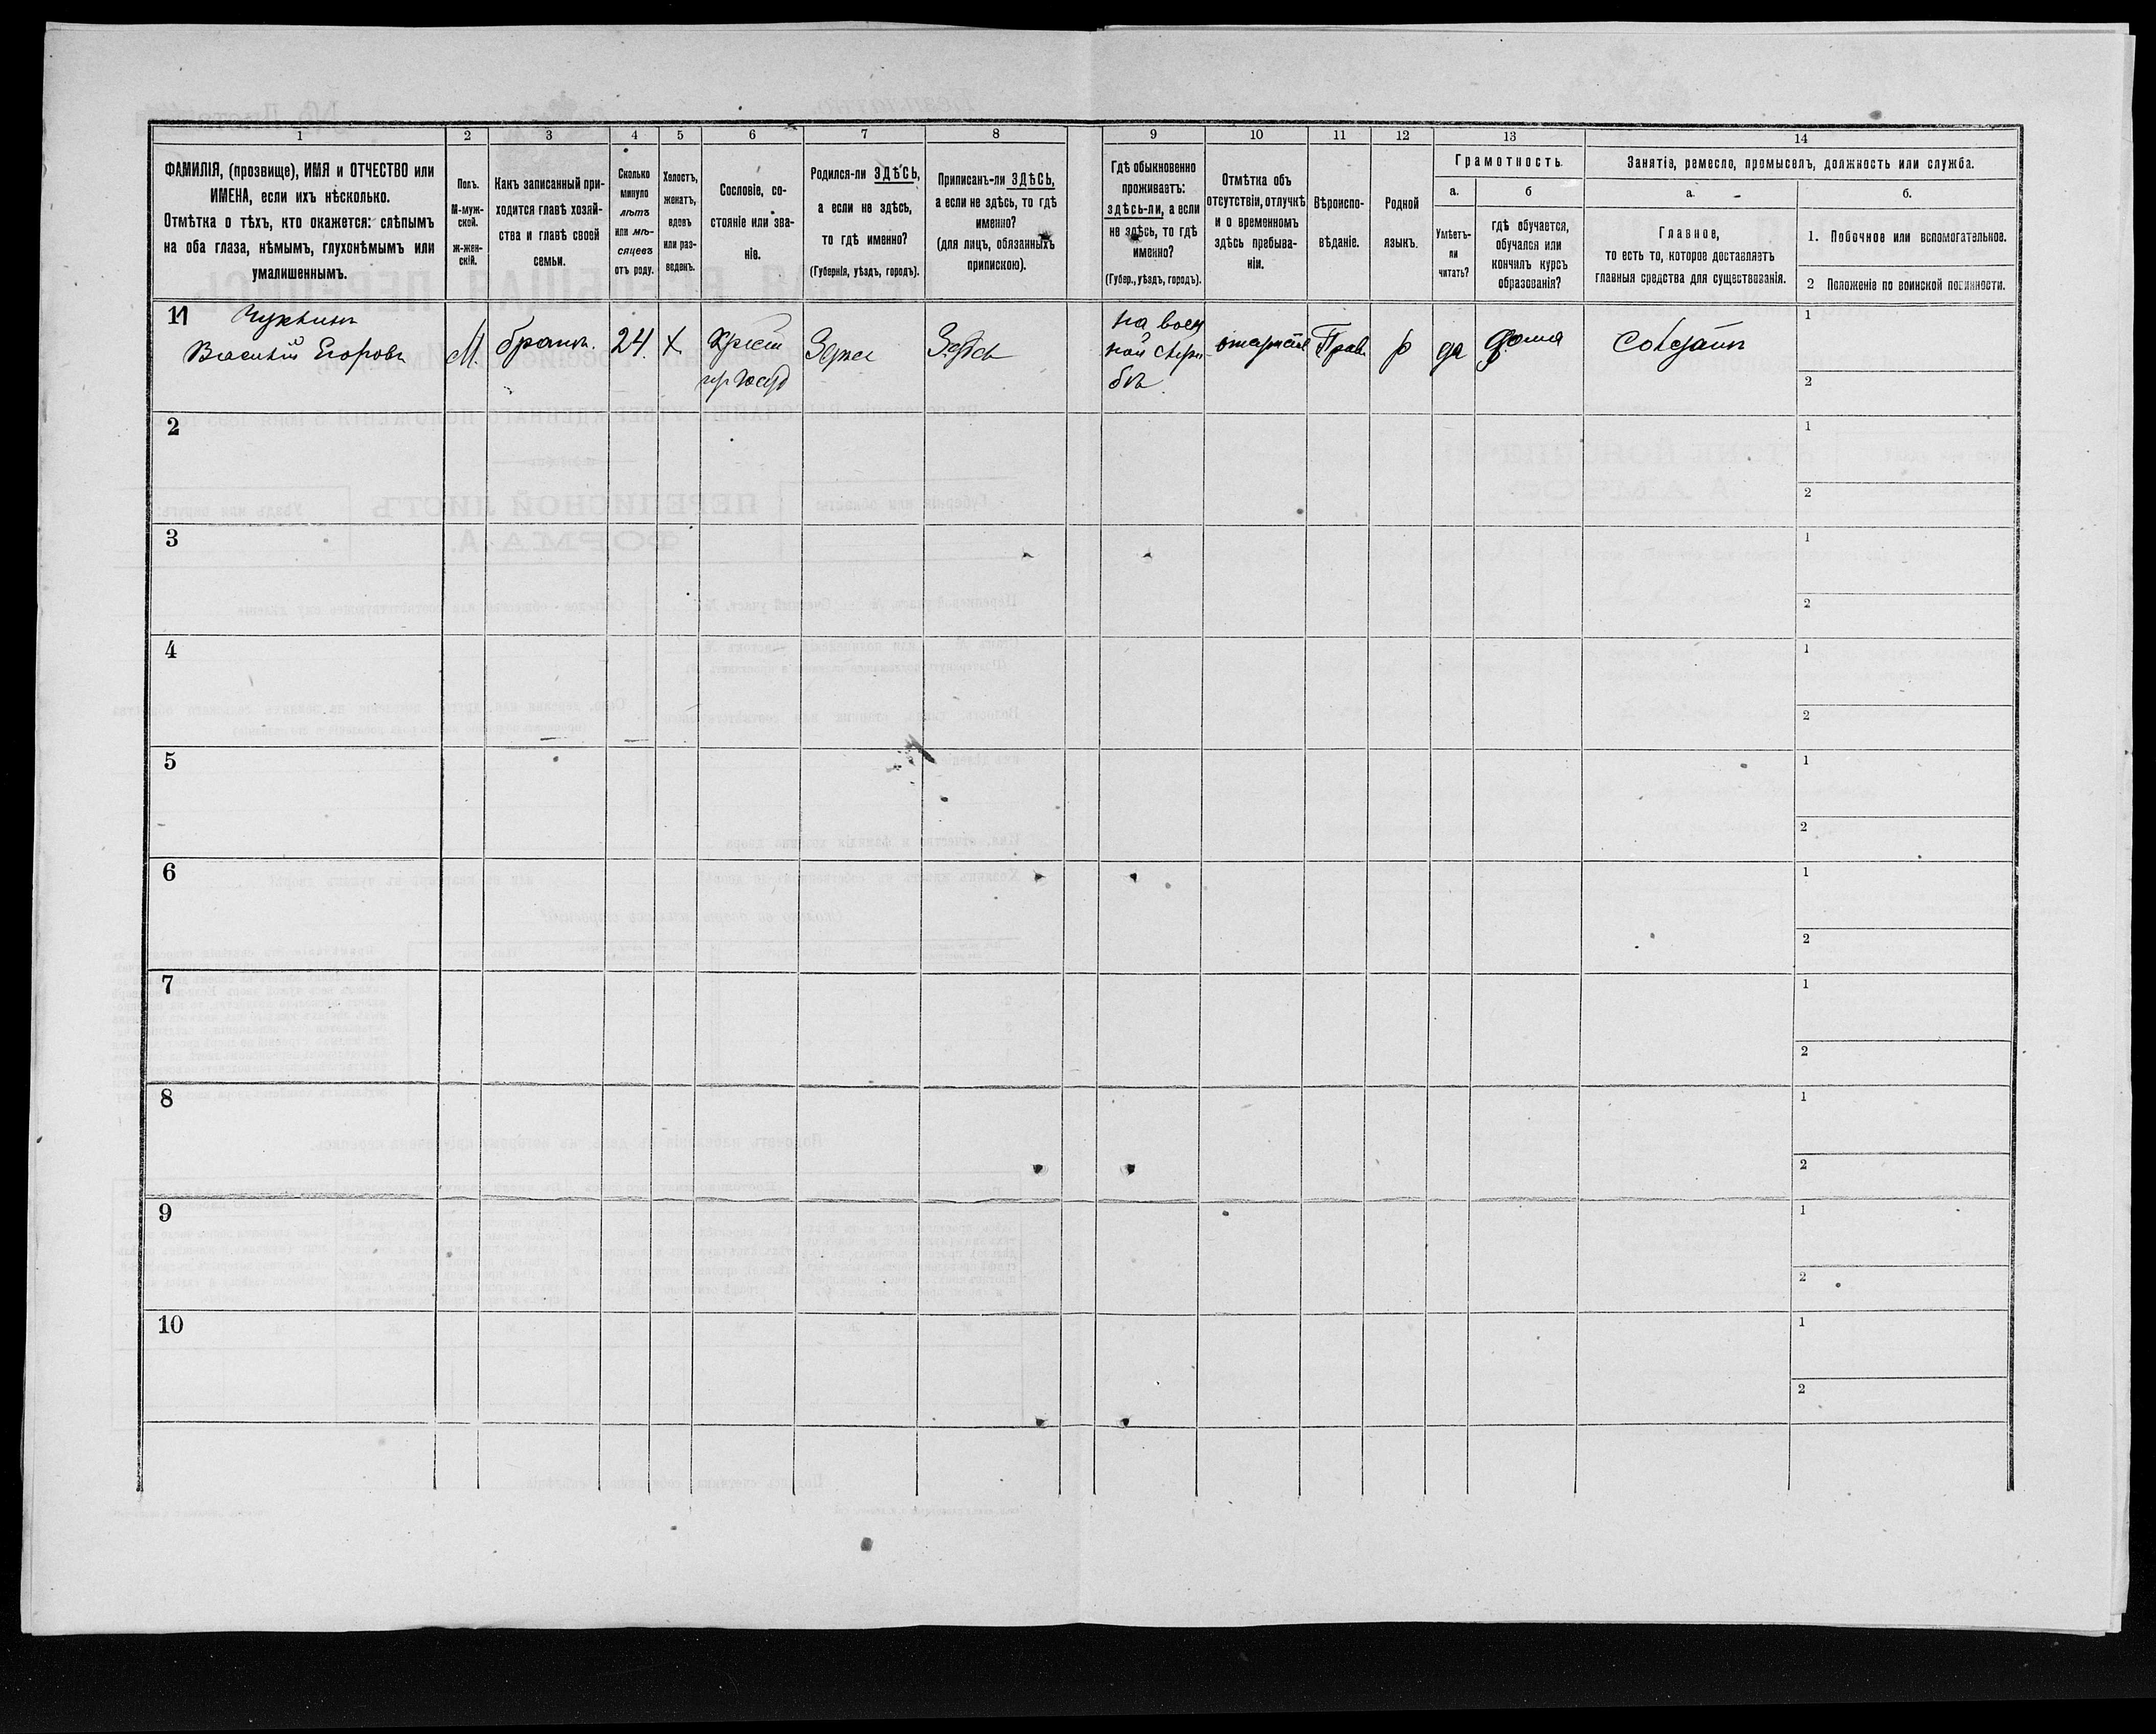 1 2 3 4 5 6 7 8 9 10 11 12 13 14
ФАМИЛІЯ, (прозвище), ИМЯ и ОТЧЕСТВО или
ИМЕНА, если ихъ нѣсколько.
Отмѣтка о тѣхъ, кто окажется: слѣпымъ
на оба глаза, нѣмымъ, глухонѣмымъ или
умалишеннымъ.
Полъ.
М-муж-
ской.
ж-жен-
скій.
Какъ записанный при-
ходится главѣ хозяй-
ства и главѣ своей
семьи.
Сколько
минуло
лѣтъ
или мѣ-
сяцевъ
отъ роду.
Холостъ,
женатъ,
вдовъ
или раз-
веденъ.
Сословіе, со-
стояніе или зва-
ніе.
Родился-ли ЗДѢСЬ,
а если не здѣсь,
то гдѣ именно?
(Губернія, уѣздъ, городъ).
Приписанъ-ли ЗДѢСЬ,
а если не здѣсь, то гдѣ
именно?
(для лицъ, обязанныхъ
припискою).
Гдѣ обыкновенно
проживаетъ:
здѣсь-ли, а если
не здѣсь, то гдѣ
именно?
(Губер., уѣздъ, городъ).
Отмѣтка объ
отсутствіи, отлучкѣ
и о временномъ
здѣсь пребыва-
ніи.
Вѣроиспо-
вѣданіе.
Родной
языкъ.
Грамотность.
а.
Умѣетъ-
ли
читать?
б
гдѣ обучается,
обучался или
кончилъ курсъ
образованія?
Занятіе, ремесло, промыселъ, должность или служба.
а.
Главное,
то есть то, которое доставляетъ
главныя средства для существованія.
б.
1. Побочное или вспомогательное.
2 Положеніе по воинской повинности.
11
Василій Егоровъ
М.
братъ.
24.
х
Крест
Здѣсь
на воен
ной служ
бѣ
Прав.
р
да
дома
Солдатъ
1
2
2
1
2
3
1
2
4
1
2
5
1
2
6
1
2
7
1
2
8
1
2
9
1
2
10
1
2